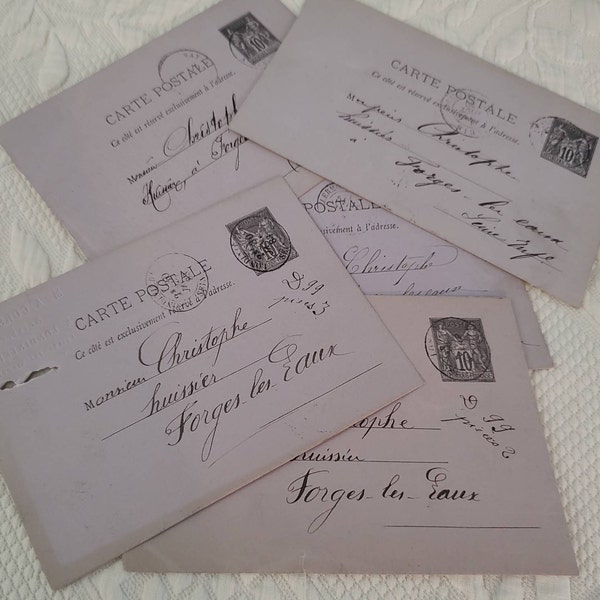 CARTE POSTALE
Ce côté est réservé exclusivement à l'adresse.
Monsieur Christophe
Huissier à Forges
10
CARTE POSTALE
Ce côté est réservé exclusivement à l'adresse.
Monsieur Christophe
huissier
à Forges-les-eaux
10
POSTALE
exclusivement à l'adresse.
Christophe
les eaux
CARTE POSTALE
Ce côté est exclusivement réservé à l'adresse.
Monsieur Christophe
huissier
Forges-les-Eaux
D 99
pièce 3
10
D 99
pièce 2
huissier
Forges-les-Eaux